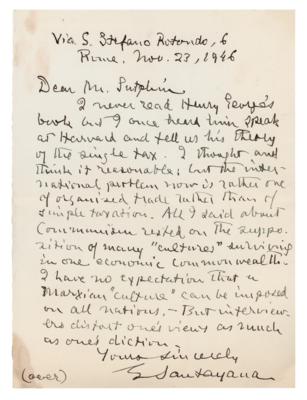 Via S. Stefano Rotondo, 6
Rome, Nov. 23, 1946
Dear Mr. Sutphin
I never read Henry George's
book but I once heard him speak
at Harvard and tell us his theory
of the single tax. I thought and
think it reasonable; but the inter-
national problem now is rather one
of organised trade rather than of
simple taxation. All I said about
Communism rested on the suppo-
sition of many "cultures" surviving
in one economic commonwealth.
I have no expectation that a
Marxian "culture" can be imposed
on all nations. — But interview-
ers distort one's views as much
as one's diction.
Yours sincerely
G Santayana
(over)